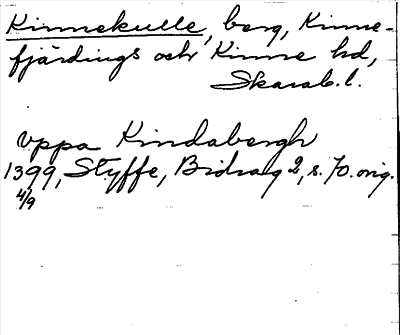 Kinnekulle, berg, Kinne-
fjärdings och Kinne hd,
Skarab. l.
uppa Kindabergh
1399, Styffe, Bidrag 2, s. 70. orig.
4/9